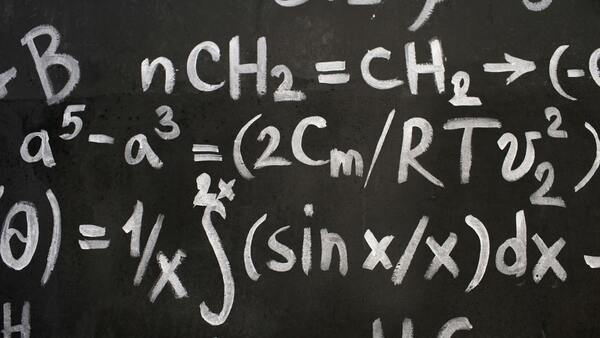 B nCH₂ = CH₂ → (-
a⁵ - a³ = (2Cm/RTv₂²)
(θ) = 1/x ∫²ˣ (sin x/x)dx -
H